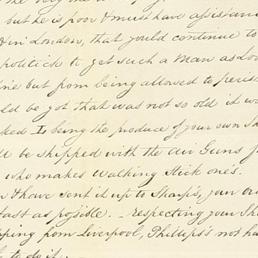 but he is poor & must have assistan
& in London, that could continue to
politick to get such a Man as Lo
ine but from being allowed to peruse
ld be got that was not so old it w
ked I being the produce of your own
ll be shipped with the Air Guns
who makes Walking Stick ones.
& have sent it up to Sharps, your
fast as possible. – respecting your Sh
ping from Liverpool, Phillips's not ha
to do it.